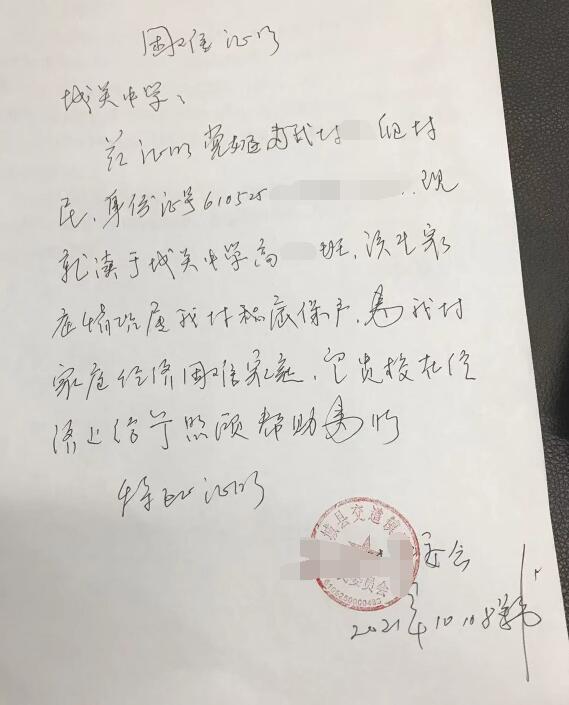 困难证明
城关中学：
兹证明党姬为我村 组村
民，身份证号610525 现
就读于城关中学高 班，该生家
庭情况属我村 低保户，为我村
家庭经济困难家庭，望贵校在经
济上给予照顾帮助为盼
特此证明
城县交道镇 委会
村民委员会
6105250000493
2021年10.10